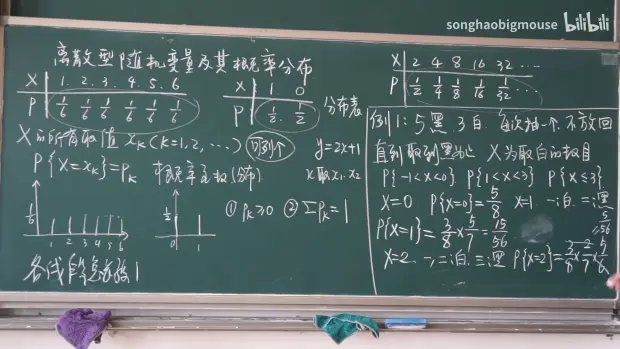 songhaobigmouse bilibili
离散型随机变量及其概率分布
X 1. 2. 3. 4. 5. 6
P 1/6 1/6 1/6 1/6 1/6 1/6
X 1 0
P 1/2 1/2 分布表
X的所有取值 xₖ (k=1,2,…) 可列个
P{X=xₖ}=Pₖ 概率函数(分布)
y=2x+1
X取x₁.x₂
1/6
1 2 3 4 5 6
1/2
0 1
① Pₖ≥0 ② ΣPₖ=1
各线段
1
X 2 4 8 16 32 …
P 1/2 1/4 1/8 1/16 1/32 …
例1: 5黑 3白 每次抽一个 不放回
直到取到黑为止 X为取白的数目
P{-1<X<0} P{1<X<3} P{X≤3}
X=0 P{X=0}=5/8 X=1 一白二黑
P{X=1}=3/8×5/7=15/56
X=2 一二白三黑 P{X=2}=3/8×2/7×5/6
5/56